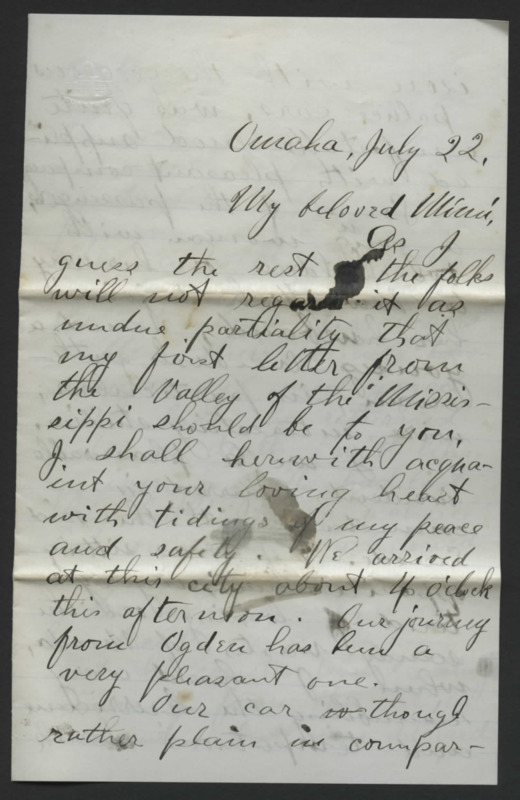 Omaha, July 22.
My beloved Mimi,
As I
guess the rest of the folks
will not regard it as
undue partiality that
my first letter from
the Valley of the Missis-
sippi should be to you,
I shall herewith acqua-
int your loving heart
with tidings of my peace
and safety. We arrived
at this city about 4 o'clock
this afternoon. Our journey
from Ogden has been a
very pleasant one.
Our car though
rather plain in compar-